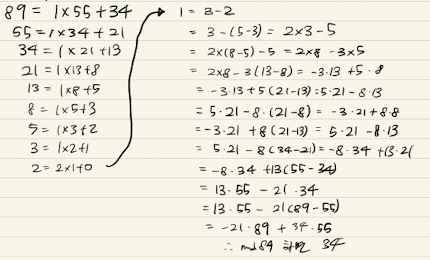 89 = 1×55+34
55 = 1×34+21
34 = 1×21+13
21 = 1×13+8
13 = 1×8+5
8 = 1×5+3
5 = 1×3+2
3 = 1×2+1
2 = 2×1+0
1 = 3-2
= 3-(5-3) = 2×3-5
= 2×(8-5)-5 = 2×8-3×5
= 2×8-3(13-8) = -3·13+5·8
= -3·13+5(21-13) = 5·21-8·13
= 5·21-8·(21-8) = -3·21+8·8
= -3·21+8(21-13) = 5·21-8·13
= 5·21-8(34-21) = -8·34+13·21
= -8·34+13(55-34)
= 13·55-21·34
= 13·55-21(89-55)
= -21·89+34·55
∴ mod 89 34